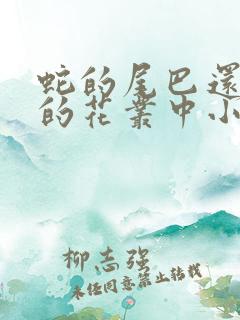 蛇的尾巴還
的花叢中小
柳志强
未经同意禁止转载